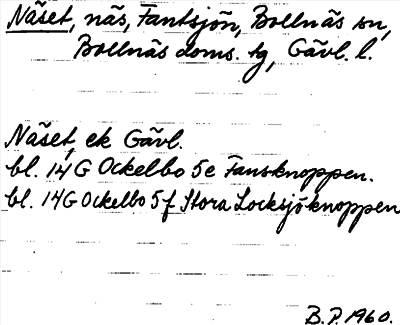 Näset, näs, Fantsjön, Bollnäs sn,
Bollnäs doms. tg, Gävl. l.
Näset, ek Gävl.
bl. 14 G Ockelbo 5e Fansknoppen.
bl. 14G Ockelbo 5f Stora Locksjöknoppen
B.P. 1960.